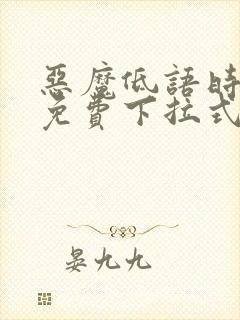 惡魔低語時
免費下拉式
晏九九